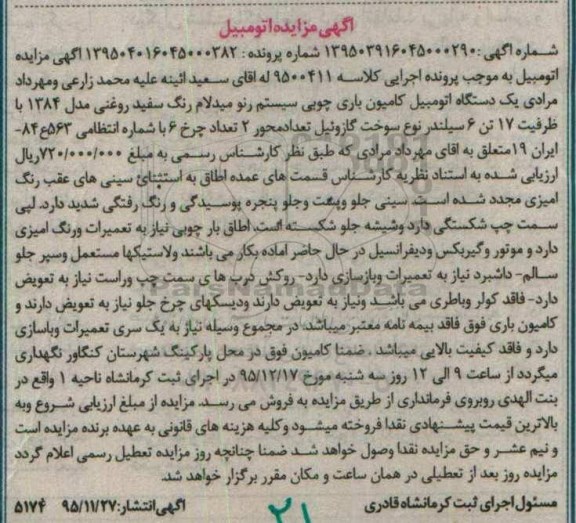 آگهی مزایده اتومبیل
شماره آگهی: ۱۳۹۵۰۳۹۱۶۰۴۵۰۰۰۲۹۰ شماره پرونده: ۱۳۹۵۰۴۰۱۶۰۴۵۰۰۰۳۸۲ آگهی مزایده
اتومبیل به موجب پرونده اجرایی کلاسه ۹۵۰۰۴۱۱ له اقای سعید ائینه علیه محمد زارعی ومهرداد
مرادی یک دستگاه اتومبیل کامیون باری چوبی سیستم رنو میدلام رنگ سفید روغنی مدل ۱۳۸۴ با
ظرفیت ۱۷ تن ۶ سیلندر نوع سوخت گازوئیل تعدادمحور ۲ تعداد چرخ ۶ با شماره انتظامی ۵۶۳ع۸۴-
ایران ۱۹متعلق به اقای مهرداد مرادی که طبق نظر کارشناس رسمی به مبلغ ۷۲۰/۰۰۰/۰۰۰ریال
ارزیابی شده به استناد نظریه کارشناس قسمت های عمده اطاق به استثنائ سینی های عقب رنگ
امیزی مجدد شده است. سینی جلو وپشت وجلو پنجره پوسیدگی و رنگ رفتگی شدید دارد. لپی
سمت چپ شکستگی دارد وشیشه جلو شکسته است. اطاق بار چوبی نیاز به تعمیرات ورنگ امیزی
دارد و موتور وگیربکس ودیفرانسیل در حال حاضر اماده بکار می باشند ولاستیکها مستعمل وسپر جلو
سالم- داشبرد نیاز به تعمیرات وبازسازی دارد- روکش درب ها ی سمت چپ وراست نیاز به تعویض
دارد- فاقد کولر وباطری می باشد ونیاز به تعویض دارند ودیسکهای چرخ جلو نیاز به تعویض دارند و
کامیون باری فوق فاقد بیمه نامه معتبر میباشد. در مجموع وسیله نیاز به یک سری تعمیرات وباسازی
دارد و فاقد کیفیت بالایی میباشد . ضمنا کامیون فوق در محل پارکینگ شهرستان کنگاور نگهداری
میگردد از ساعت ۹ الی ۱۲ روز سه شنبه مورخ ۹۵/۱۲/۱۷ در اجرای ثبت کرمانشاه ناحیه ۱ واقع در
بنت الهدی روبروی فرمانداری از طریق مزایده به فروش می رسد. مزایده از مبلغ ارزیابی شروع وبه
بالاترین قیمت پیشنهادی نقدا فروخته میشود وکلیه هزینه های قانونی به عهده برنده مزایده است
و نیم عشر و حق مزایده نقدا وصول خواهد شد ضمنا چنانچه روز مزایده تعطیل رسمی اعلام گردد
مزایده روز بعد از تعطیلی در همان ساعت و مکان مقرر برگزار خواهد شد.
مسئول اجرای ثبت کرمانشاه قادری آگهی انتشار: ۹۵/۱۱/۲۷ ۵۱۷۴
۲۱
ParsNamadData